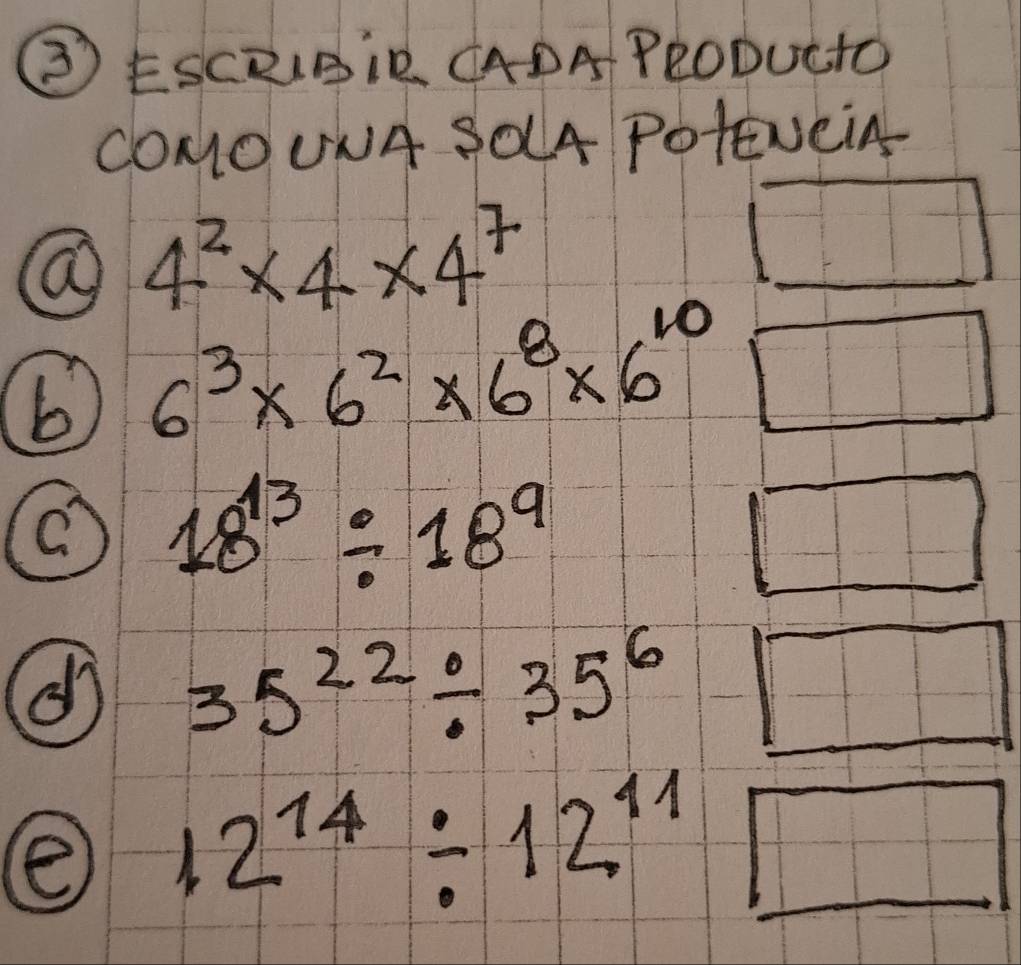 ③ ESCRIBIR CADA PRODUCTO
COMO UNA SOLA POTENCIA
ⓐ 4² × 4 × 4⁷
ⓑ 6³ × 6² × 6⁸ × 6¹⁰
ⓒ 18¹³ ÷ 18⁹
ⓓ 35²² ÷ 35⁶
ⓔ 12¹⁴ ÷ 12¹¹